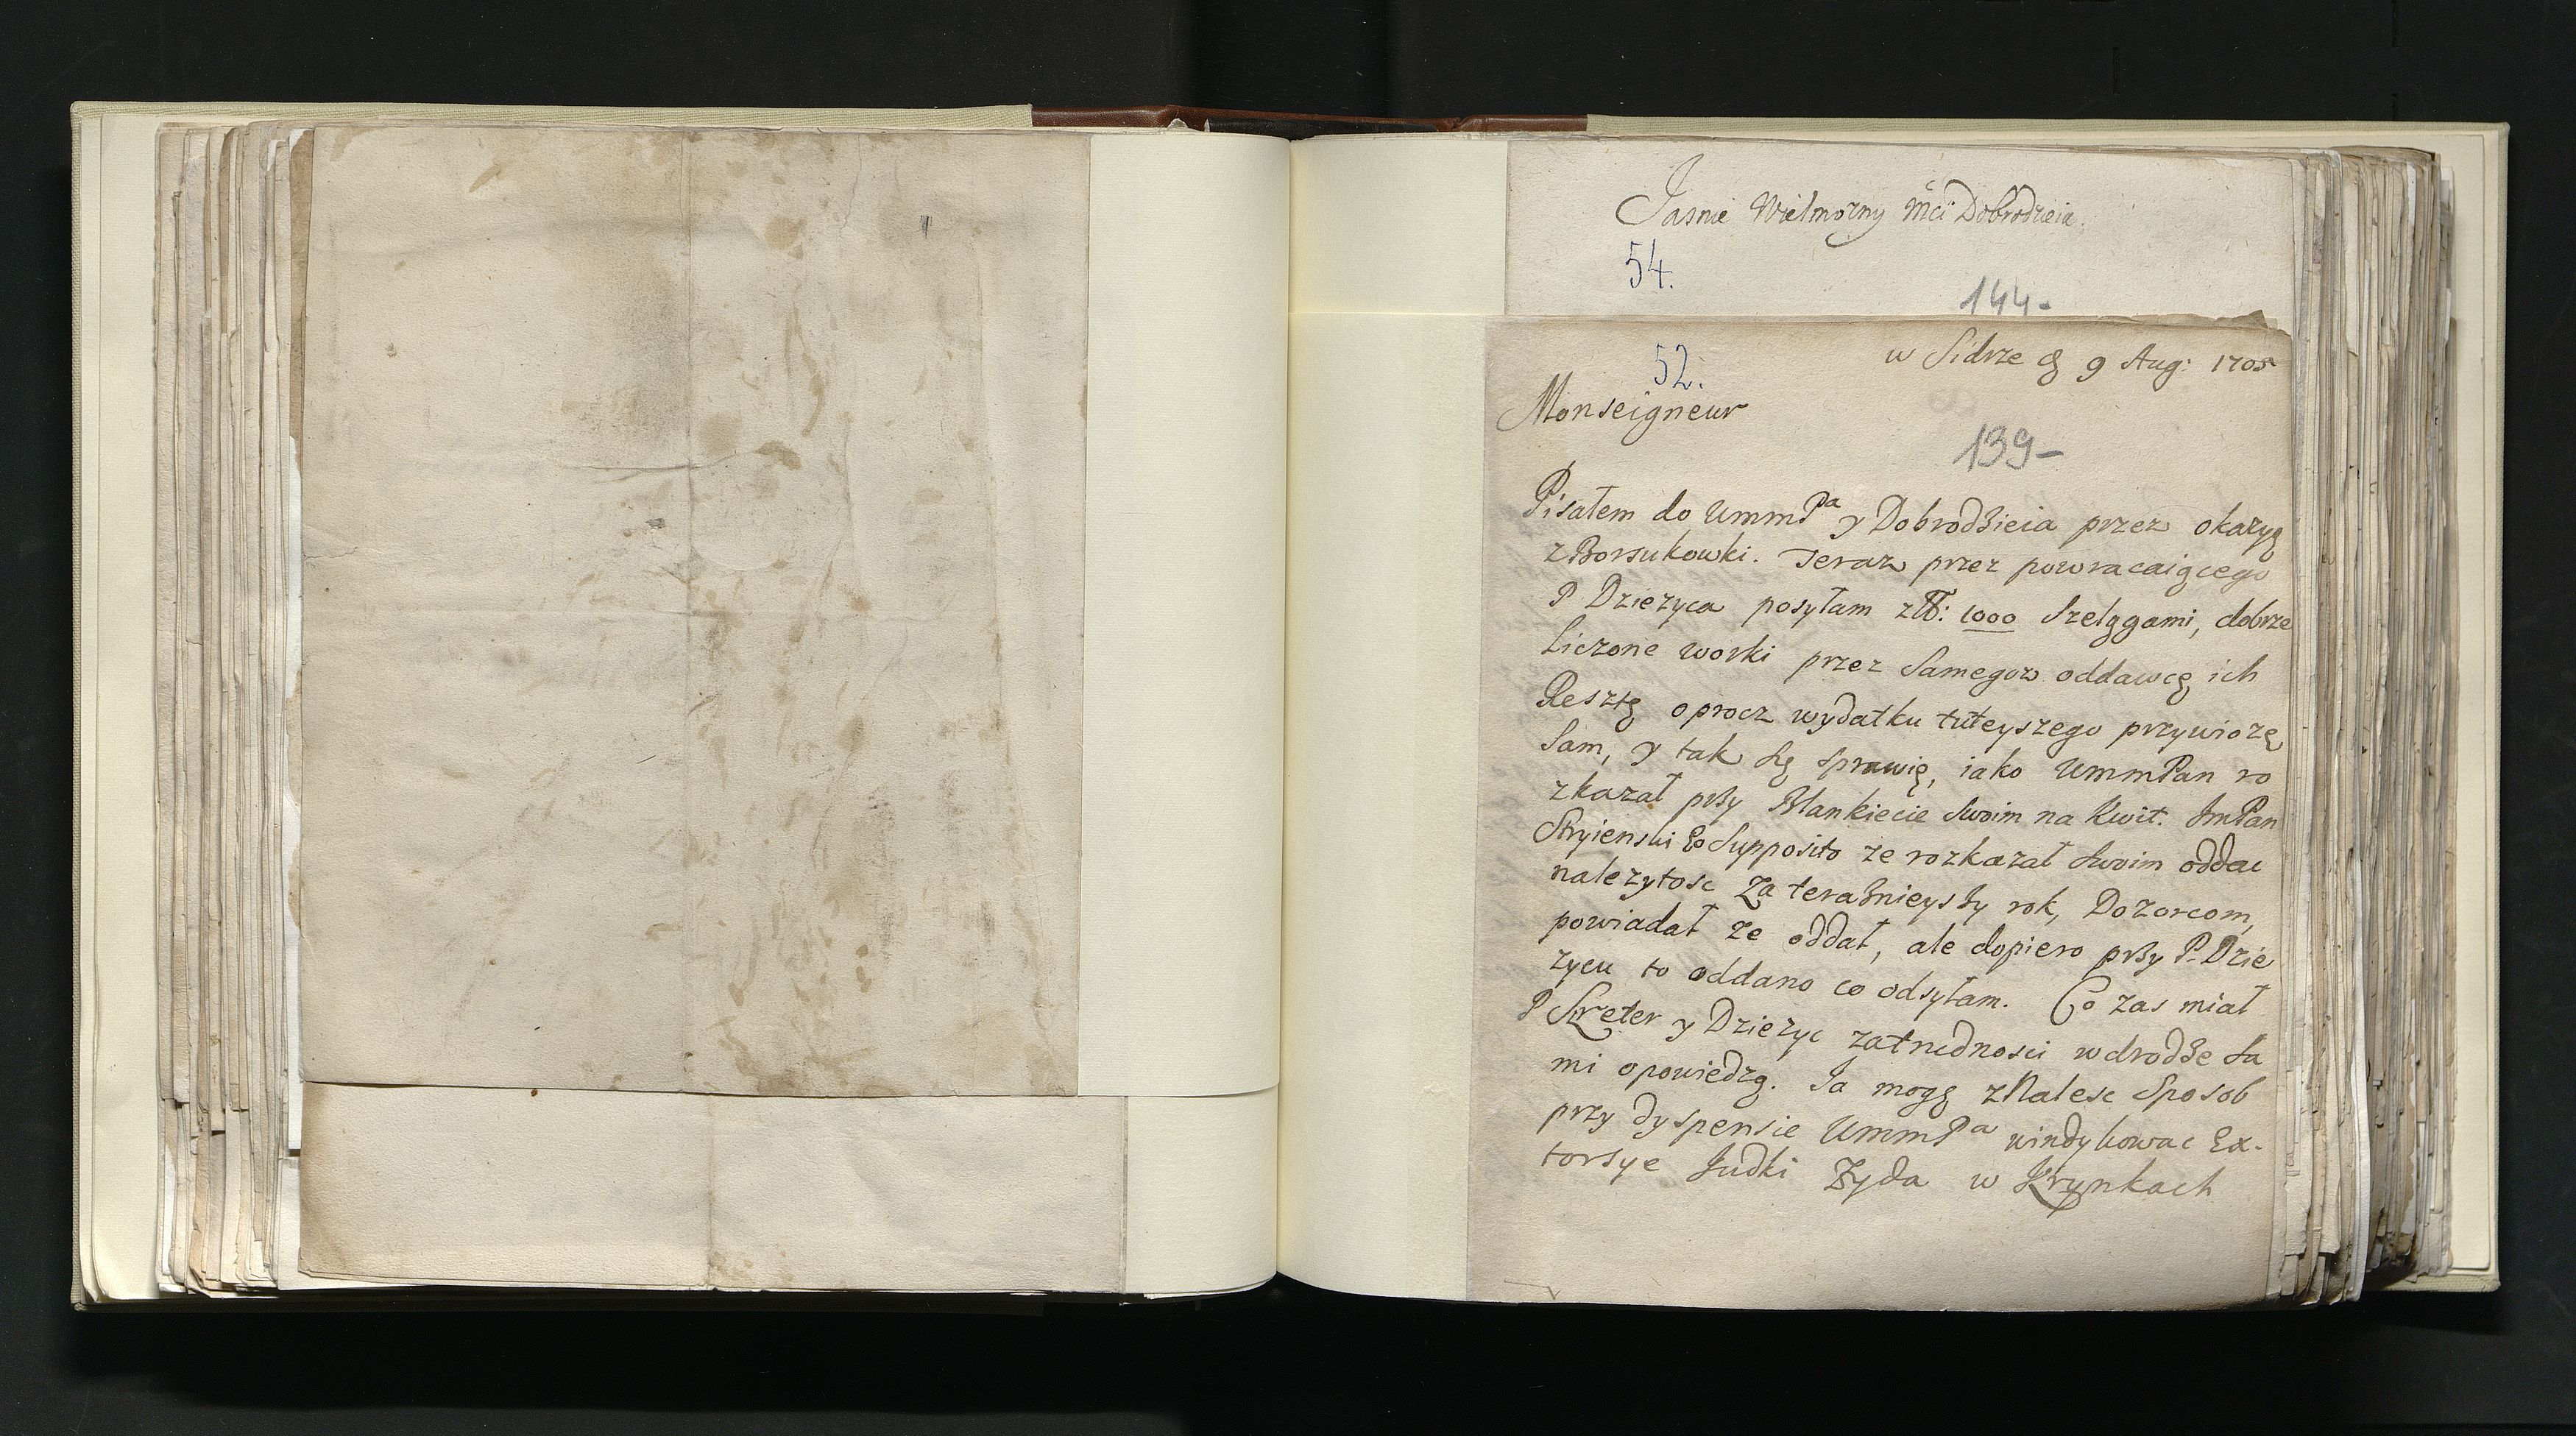 Jasnie Wielmozny Mci Dobrodzieia.
54.
144-
w Sidrze 9 Aug: 1705
52.
Monseigneur
139-
Pisałem do UmmPa y Dobrodzieia przez okazyą
z Borsukowki. Teraz przez powracaiącego
P Dziezyca posyłam zł: 1000 Szelągami, dobrze
liczone worki przez Samegoz oddawcę, ich
Resztę oprocz wydatku tuteyszego przywiozę
Sam, y tak się sprawię, iako UmmPan ro
zkazał przy Blankiecie Swoim na Kwit. ImPan
Stryienski Ex Supposito ze rozkazał Swoim oddac
nalezytosc za teraznieyszy rok, Dozorcom,
powiadał ze oddał, ale dopiero przy P. Dzie
zycu to oddano co odsyłam. Co zas miał
P Kreter y Dziezyc zatrudnosci wdrodze Sa
mi opowiedzą. Ia mogę znalesc Sposob
przy dyspensie UmmPa windykowac Ex-
torsye Iudki Zyda w Krynkach